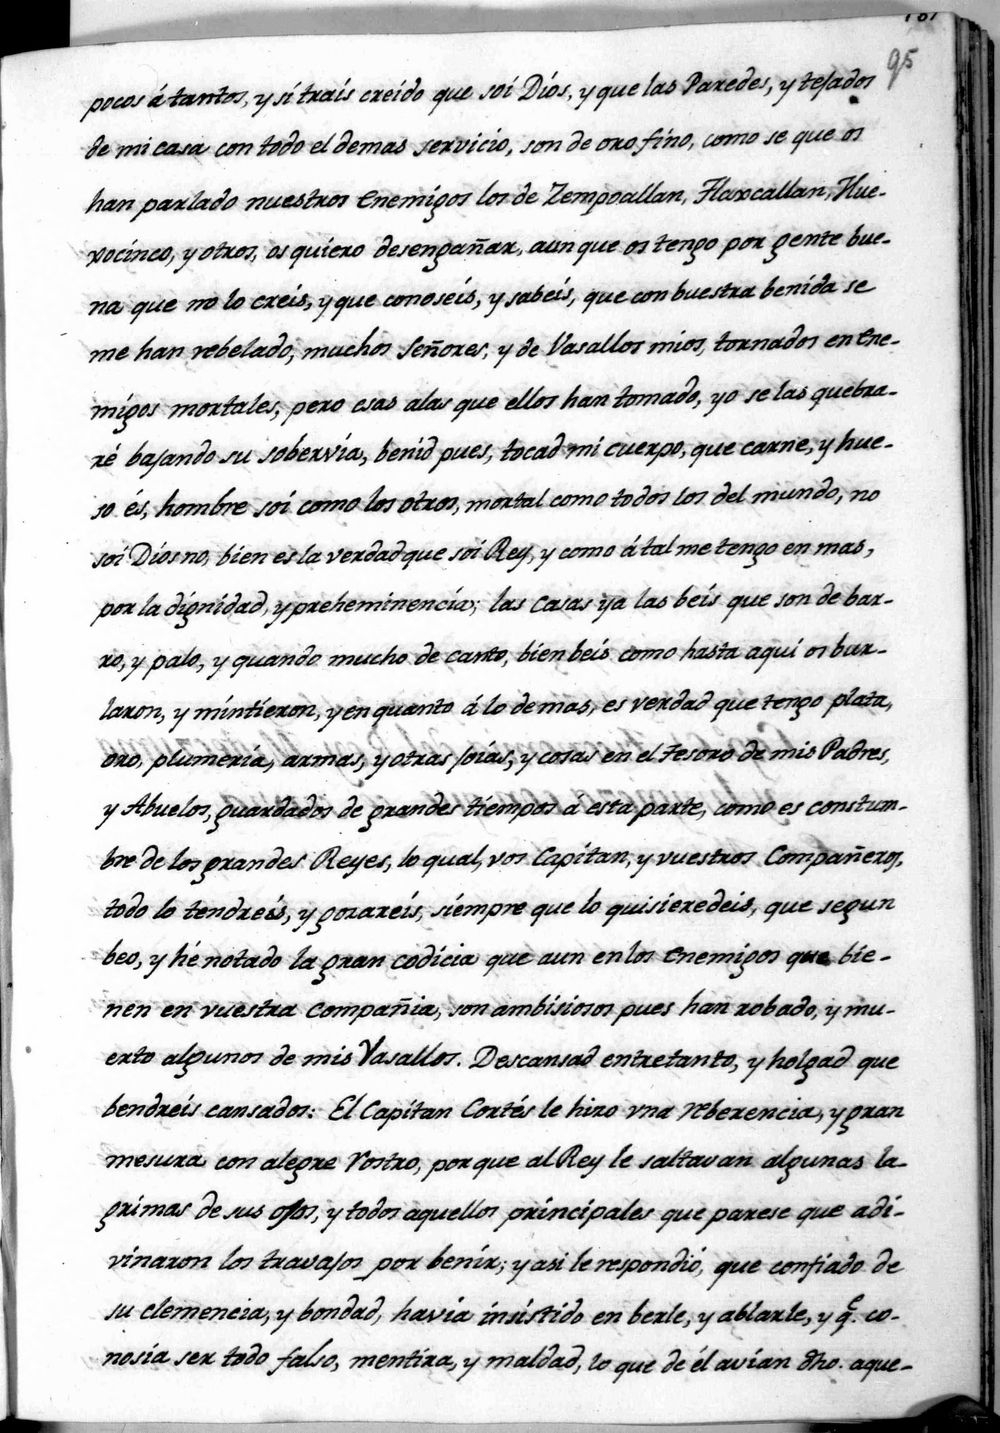 95
pocos á tantos, y si trais creido que soi Díos, y que las Paredes, y tejados
de mi casa con todo el demas servicio, son de oro fino, como se que os
han parlado nuestros enemigos los de Zempoallan, Tlaxcallan, Hue-
xocinco, y otros, os quiero desengañar, aun que os tengo por gente bue-
na que no lo creis, y que conoseis, y sabeis, que con buestra benida se
me han rebelado, muchos Señores, y de Vasallos mios, tornados en ene-
migos mortales; pero esas alas que ellos han tomado, yo se las quebra-
ré bajando su sobervia, benid pues, tocad mi cuerpo, que carne, y hue-
so és, hombre soi como los otros, mortal como todos los del mundo, no
soi Díos no, bien es la verdad que soi Rey, y como á tal me tengo en mas,
por la dignidad, y preheminencia; las casas ya las beis que son de bar-
ro, y palo, y quando mucho de canto, bien beis como hasta aqui os bur-
laron, y míntieron, y en quanto á lo demas, es verdad que tengo plata,
oro, plumeria, armas, y otras Joias, y cosas en el tesoro de mis Padres,
y Abuelos, guardados de grandes tíempos á esta parte, como es constum-
bre de los grandes Reyes, lo qual, vos Capítan, y vuestros Compañeros,
todo lo tendreis, y gozareis, síempre que lo quisieredeis, que segun
beo, y hé notado la gran codicia que aun en los enemigos que bie-
nen en vuestra compañia, son ambisiosos pues han robado, y mu-
erto algunos de mis Vasallos. Descansad entretanto, y holgad que
bendreis cansados: El Capítan Cortés le hizo vna reberencia, y gran
mesura con alegre Rostro, por que al Rey le saltavan algunas la-
grimas de sus ojos, y todos aquellos principales que parese que adi-
vinaron los travajos por benir; y asi le respondió, que confiado de
su clemencia, y bondad, havia insistido en berle, y ablarle, y q̃e co-
nosia ser todo falso, mentira, y maldad, lo que de él avían dho. aque-